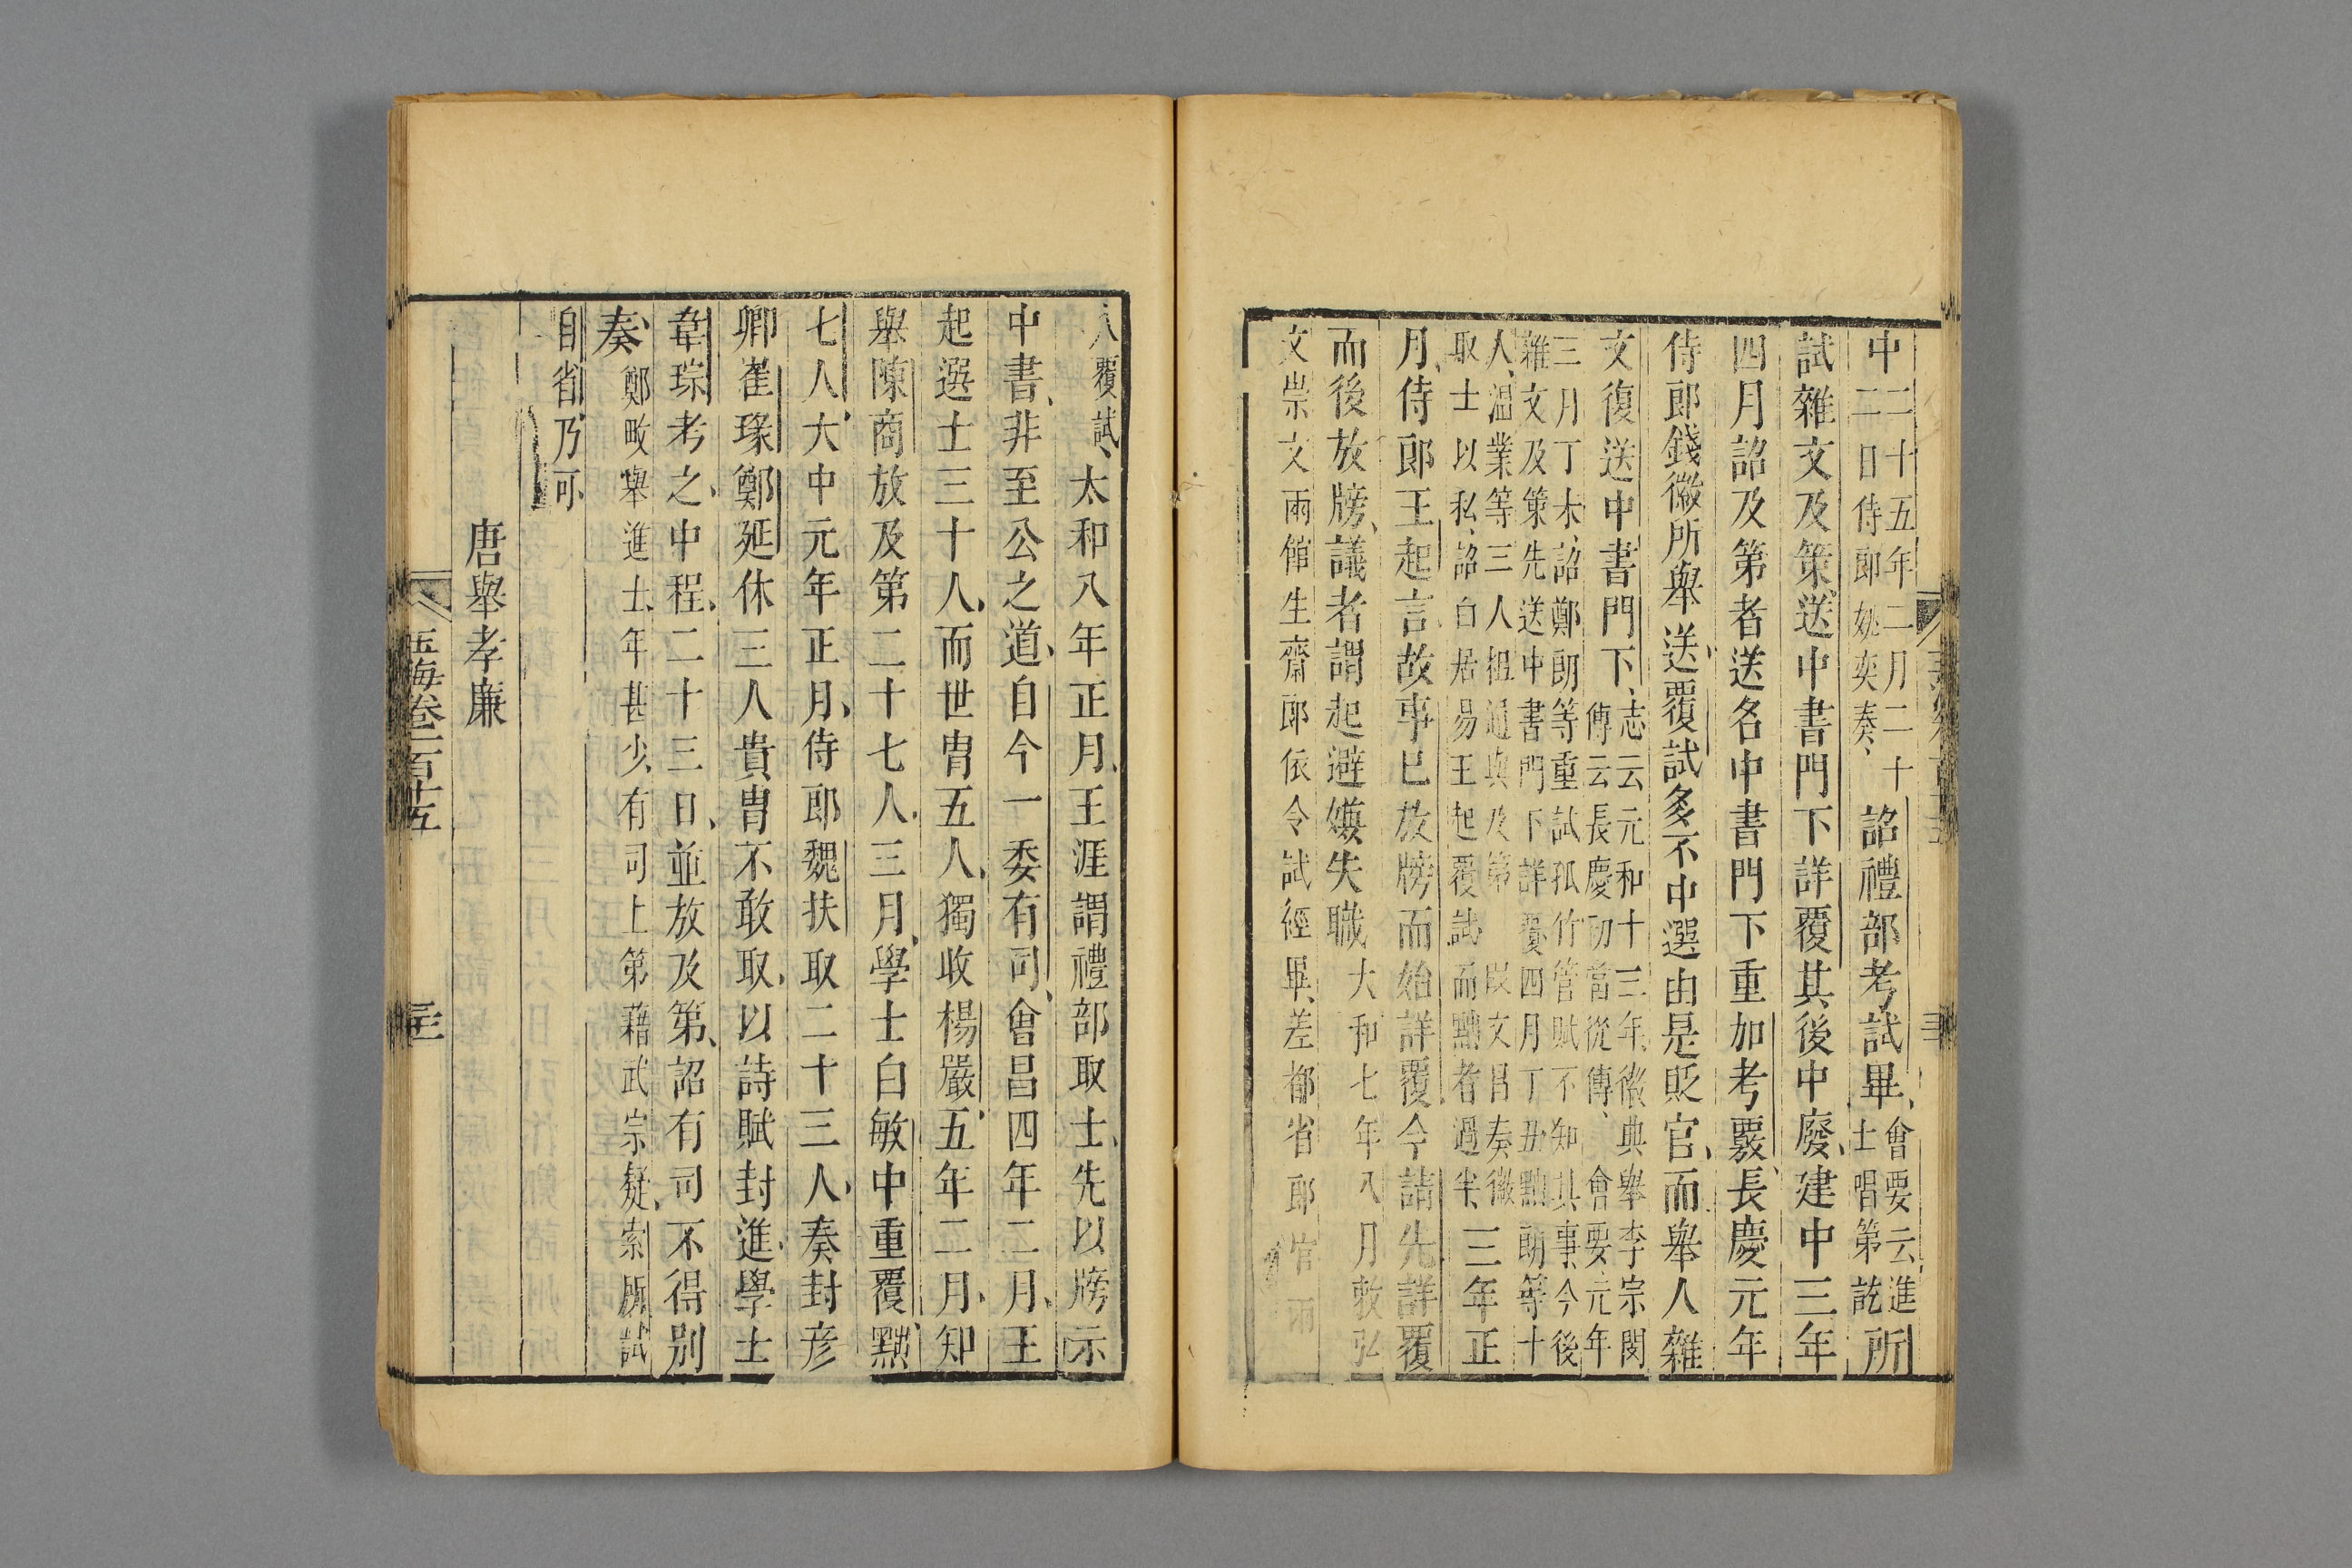 中二十五年二月二十二日侍郎姚奕奏詔禮部考試畢會要云進士唱第訖所
試雜文及策送中書門下詳覆其後中廢建中三年
四月詔及第者送名中書門下重加考覈長慶元年
侍郎錢徽所舉送覆試多不中選由是貶官而舉人雜
文復送中書門下志云元和十三年徽典舉李宗閔傳云長慶初當從傳會要元年
三月丁未詔鄭朗等重試孤竹管賦不知其事今後雜文及策先送中書門下詳覆四月丁丑黜朗等十
人溫業等三人粗通與及第段文昌奏徽取士以私詔白居易王起覆試而黜者過半三年正
月侍郎王起言故事已放牓而始詳覆今請先詳覆
而後放牓議者謂起避嫌失職大和七年八月敕弘
文崇文兩館生齋郎依令試經畢差都省郎官兩
人覆試太和八年正月王涯謂禮部取士先以牓示
中書非至公之道自今一委有司會昌四年二月王
起選士三十人而世胄五人獨收楊嚴五年二月知
舉陳商放及第二十七人三月學士白敏中重覆黜
七人大中元年正月侍郎魏扶取二十三人奏封彦
卿崔瑑鄭延休三人貴胄不敢取以詩賦封進學士
韋琮考之中程二十三日並放及第詔有司不得別
奏鄭畋舉進士年甚少有司上第藉武宗疑索所試
自省乃可
唐舉孝廉
玉海卷一百十五